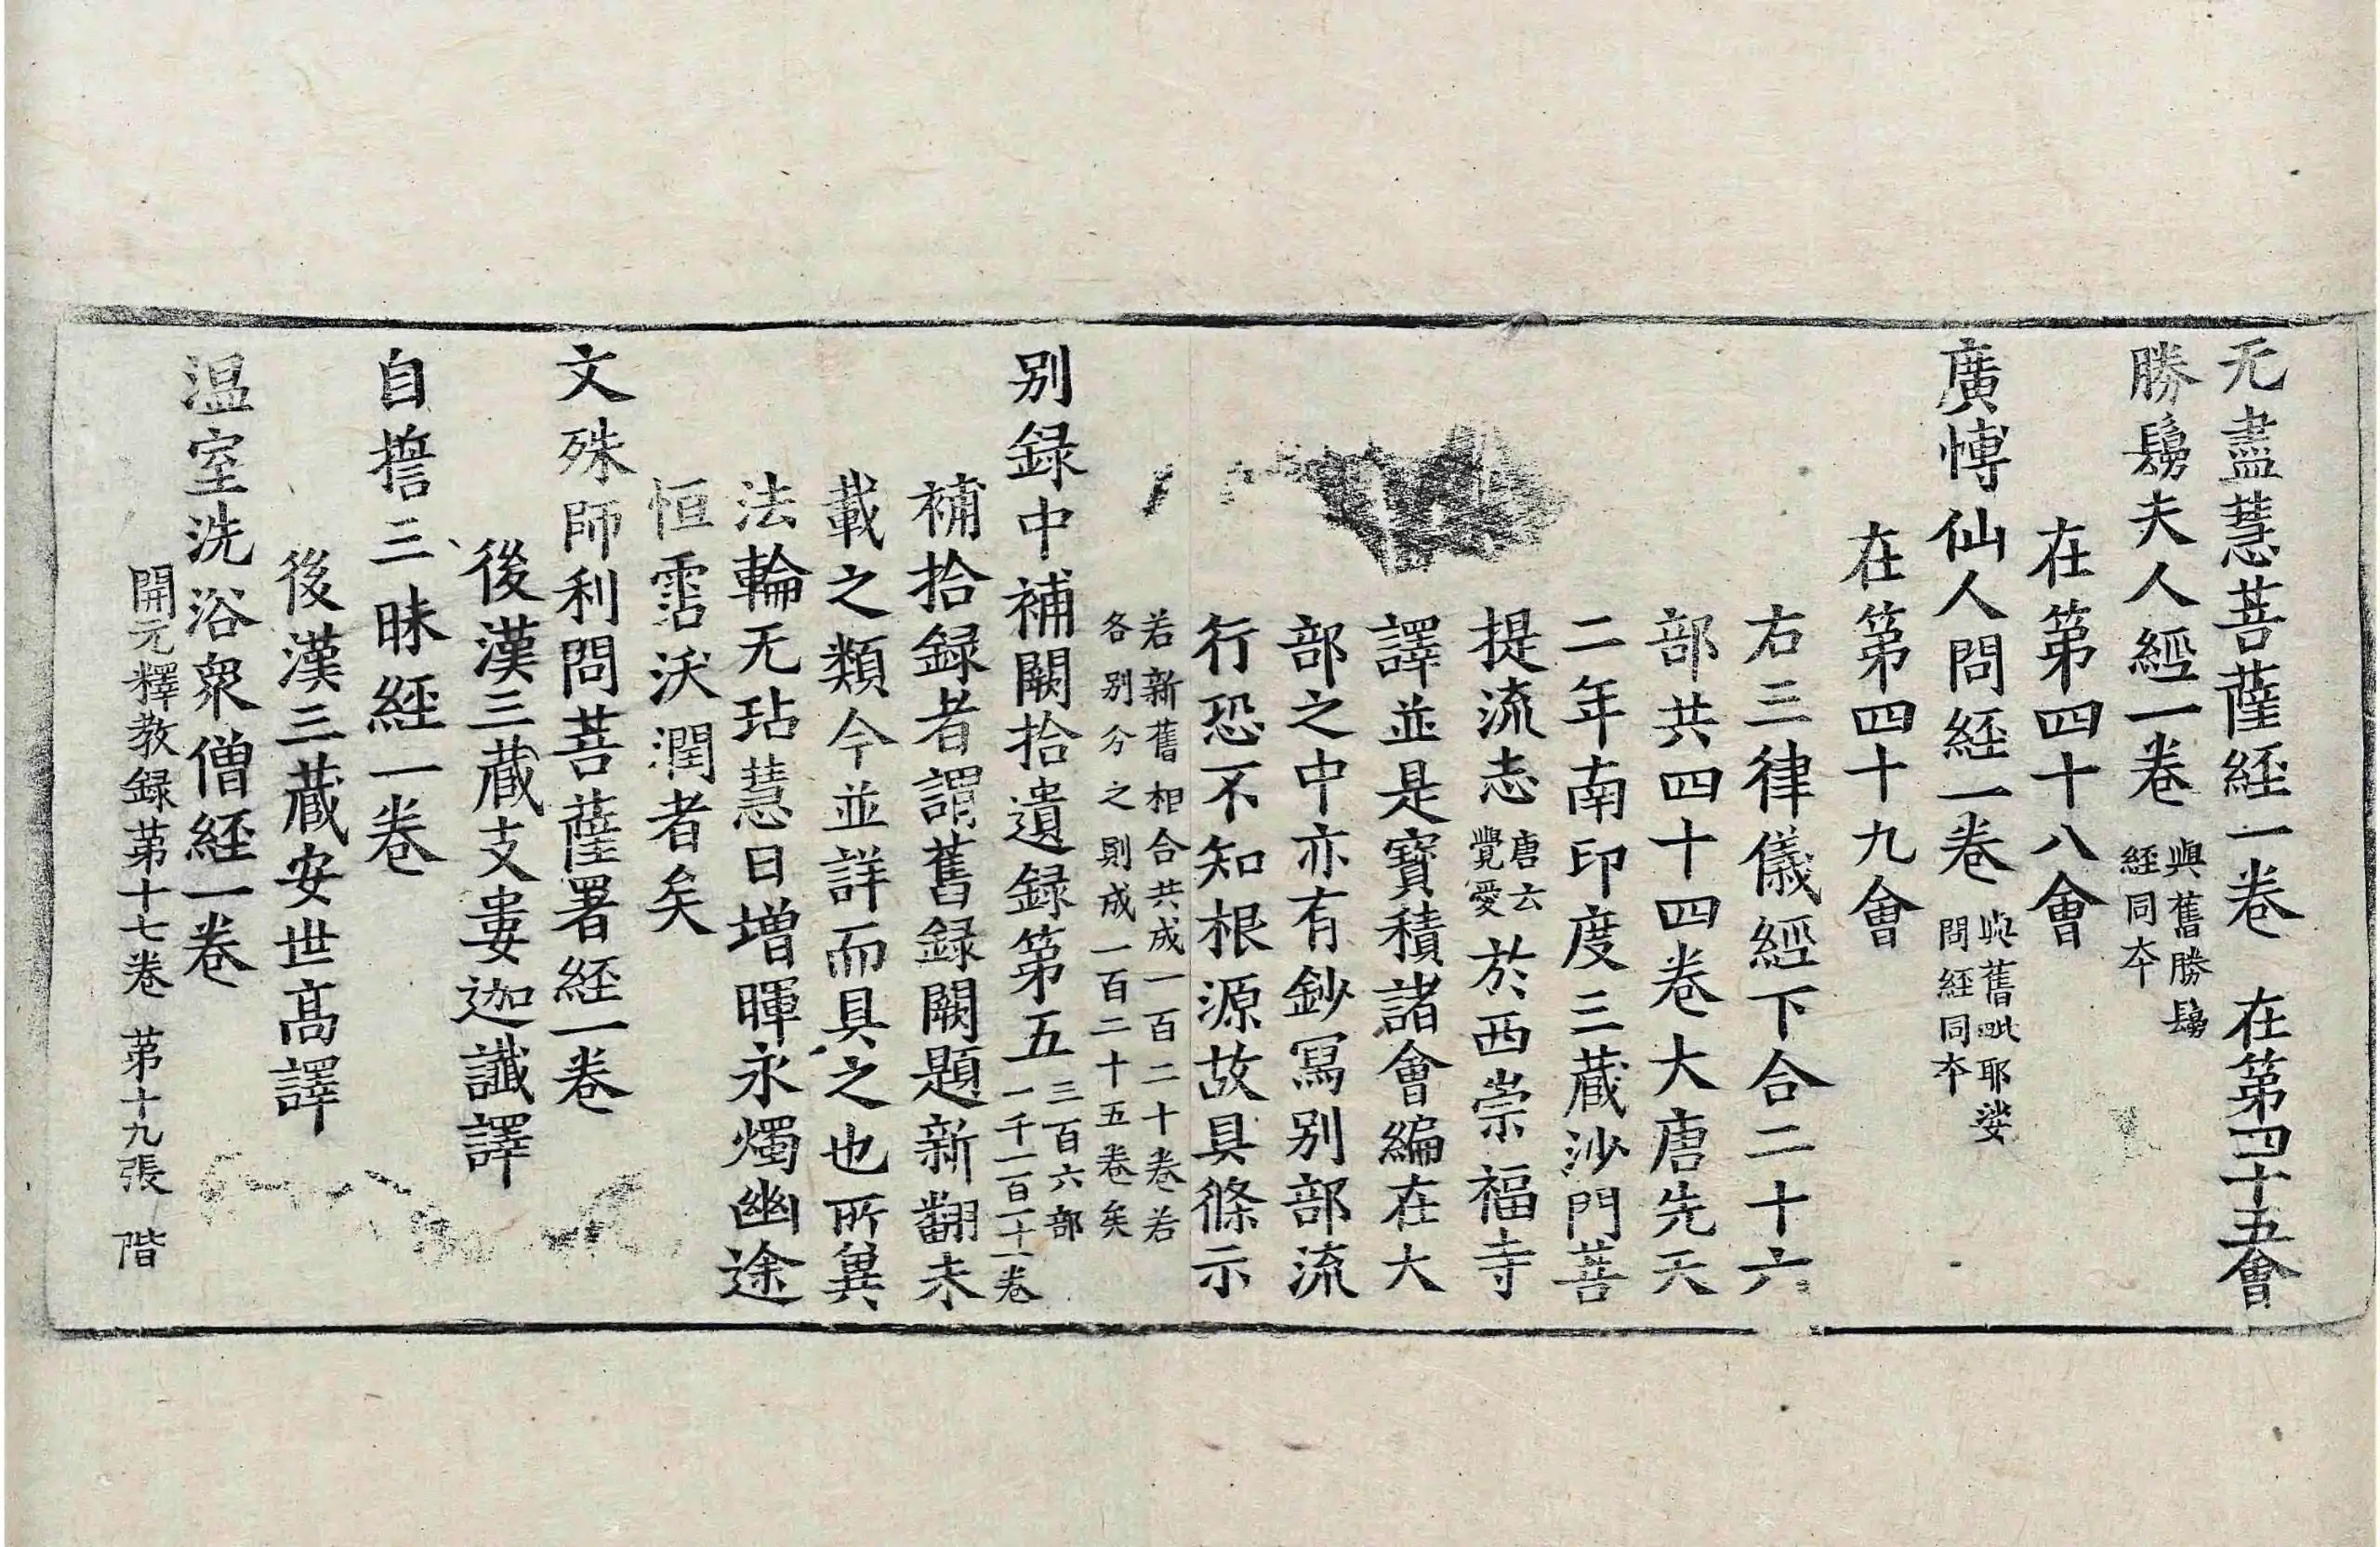 无盡慧菩薩經一卷 在第四十五會
勝鬘夫人經一卷 與舊勝鬘經同夲
在第四十八會
廣愽仙人問經一卷 與舊毗耶娑問經同夲
在第四十九會
右三律儀經下合二十六
部共四十四卷大唐先天
二年南印度三藏沙門菩
提流志唐云覺愛於西崇福寺
譯並是寶積諸會編在大
部之中亦有鈔寫别部流
行恐不知根源故具條示
若新舊相合共成一百二十卷若
各别分之則成一百二十五卷矣
别録中補闕拾遺録第五 三百六部一千一百一十一卷
補拾録者謂舊録闕題新翻未
載之類今並詳而具之也所兾
法輪无玷慧日增暉永燭幽途
恒霑沃潤者矣
文殊師利問菩薩署經一卷
後漢三藏支婁迦讖譯
自誓三昧經一卷
後漢三藏安世高譯
温室洗浴衆僧經一卷
開元釋教録苐十七卷 苐十九張 階